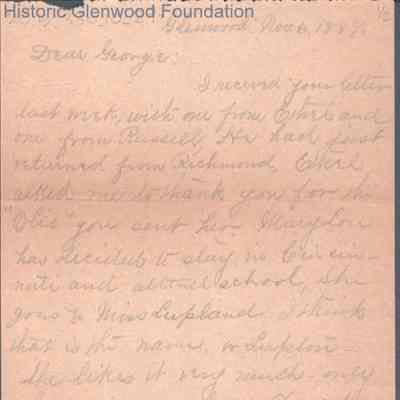 Historic Glenwood Foundation
1/2
Glenwood Nov 6, 188
Dear George:
I received your letter
last week, with one from Ethel and
one from Russell. He had just
returned from Richmond, Ethel
asked me to thank you for the
you sent her. Mary Lou
has decided to stay in Cincin-
nati and attend school, she
goes to Miss Lupland I think
that is the name, or Lupton -
She likes it very much - only